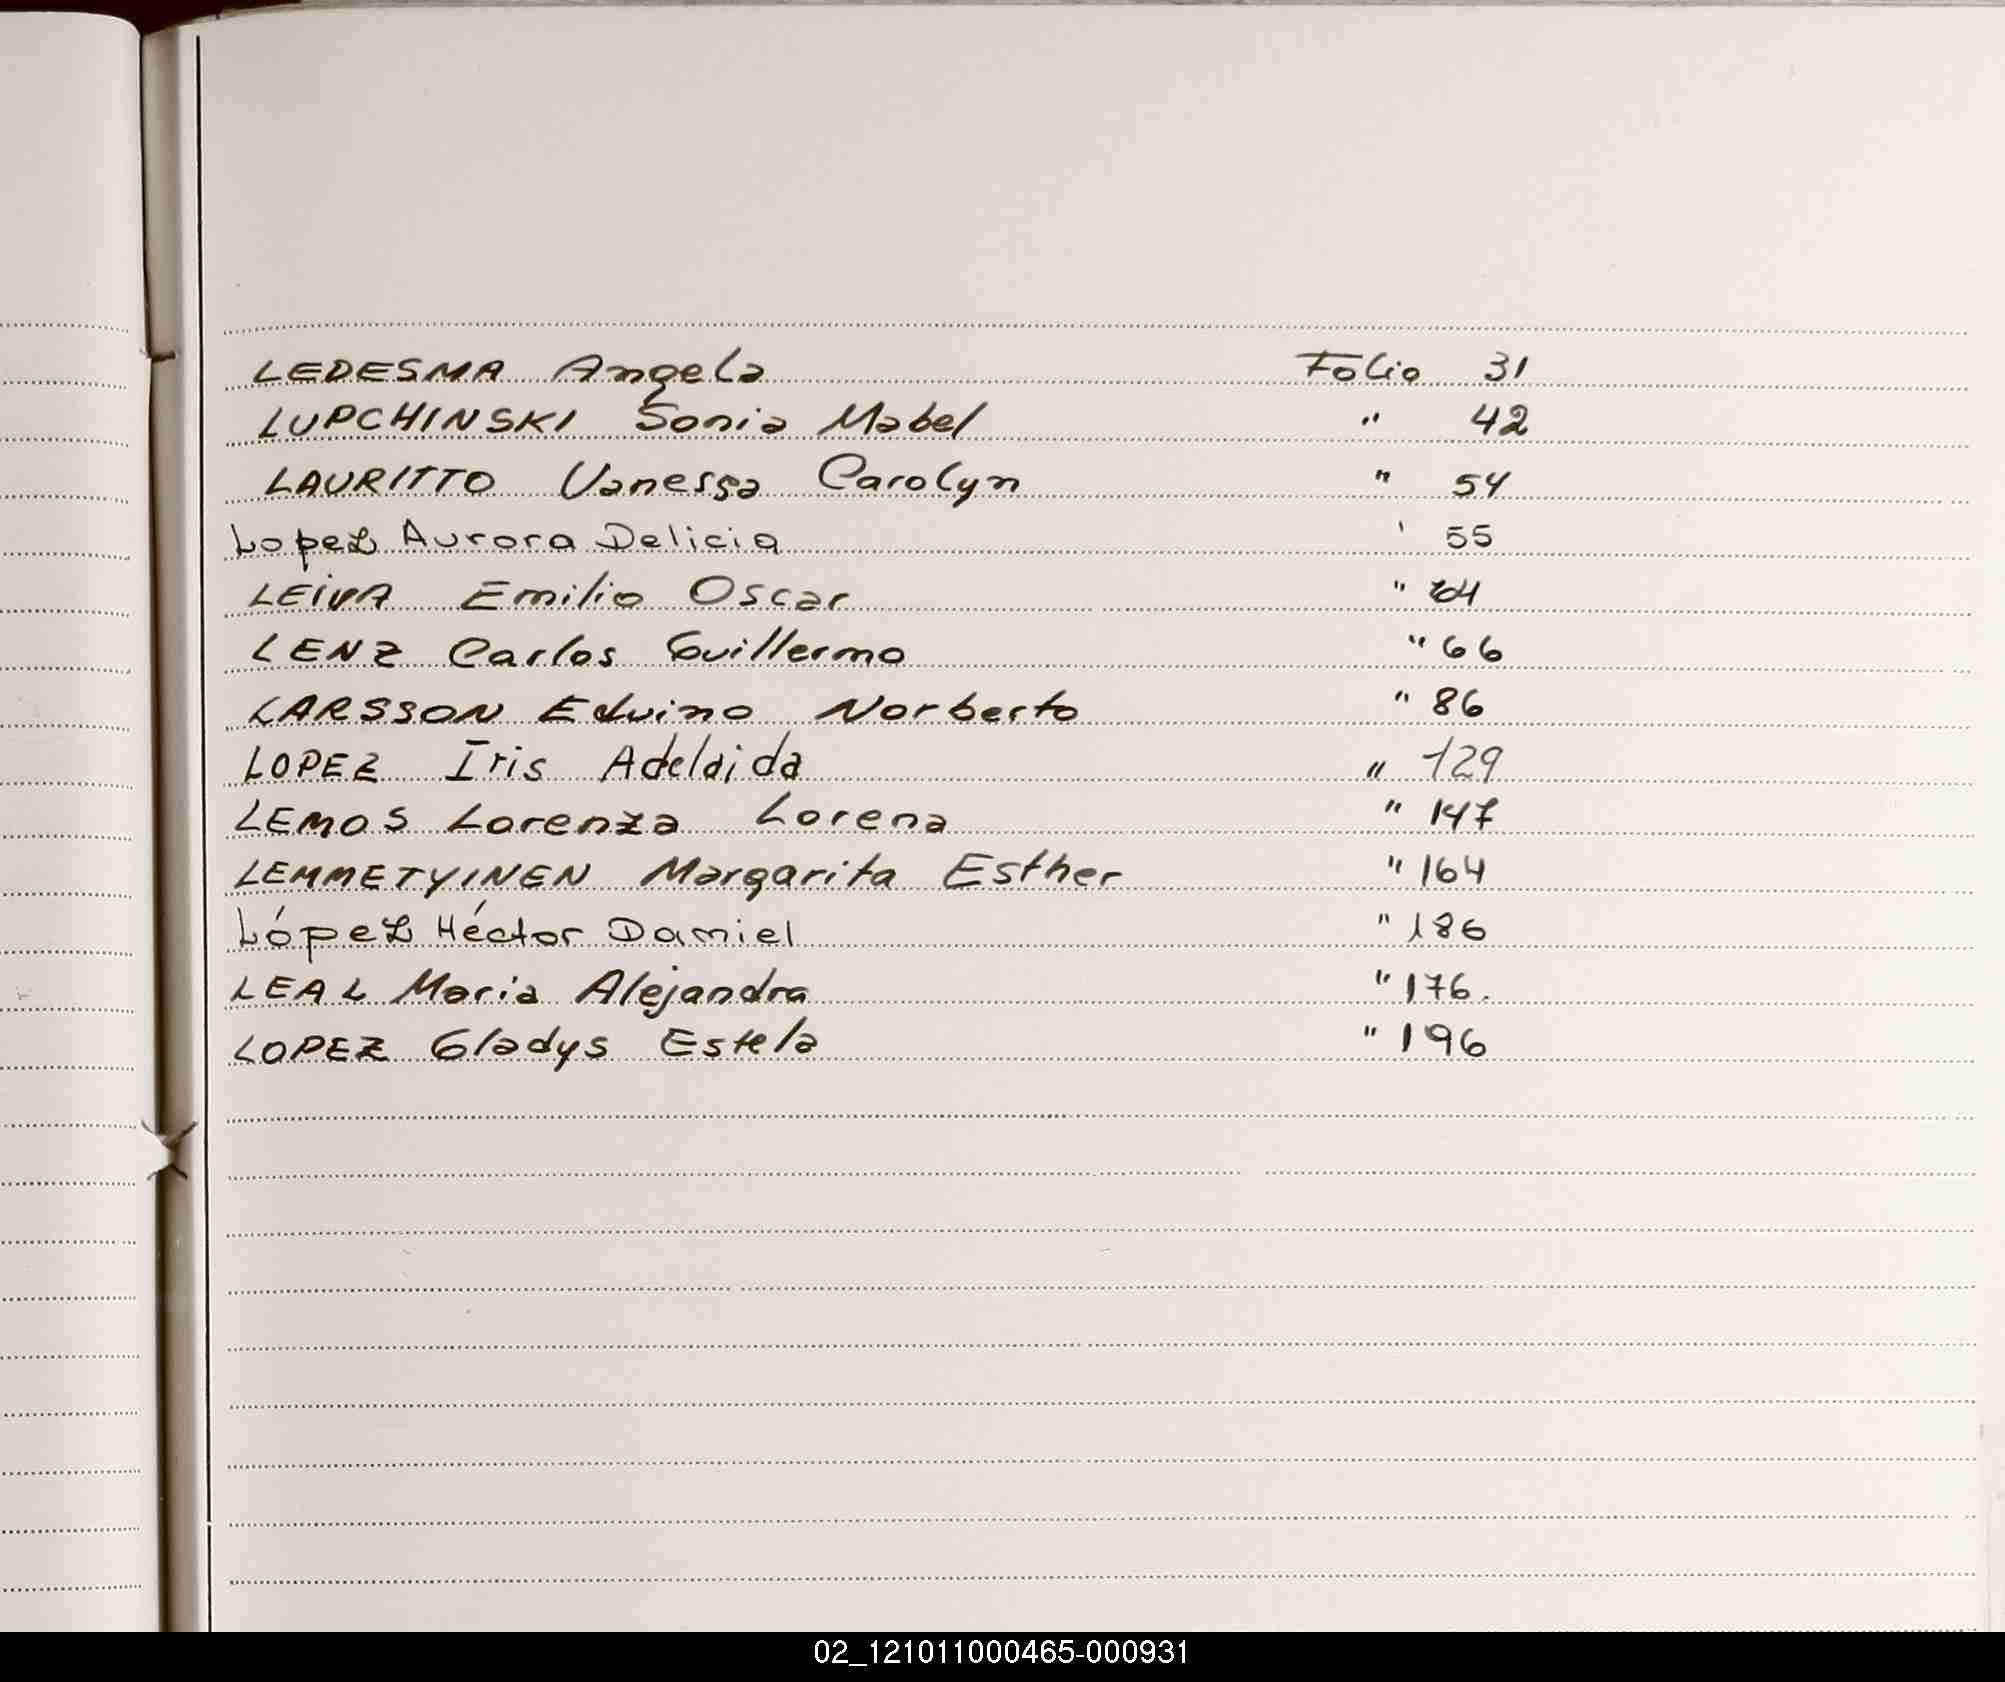 LEDESMA Angela Folio 31
LUPCHINSKI Sonia Mabel " 42
LAURITTO Vanessa Carolyn " 54
Lopez Aurora Delicia ' 55
LEIVA Emilio Oscar " 64
LENZ Carlos Guillermo " 66
LARSSON Eduino Norberto " 86
LOPEZ Iris Adelaida " 129
LEMOS Lorenza Lorena " 147
LEMMETYINEN Margarita Esther " 164
López Héctor Daniel " 186
LEAL Maria Alejandra " 176.
LOPEZ Gladys Estela " 196
02_121011000465-000931